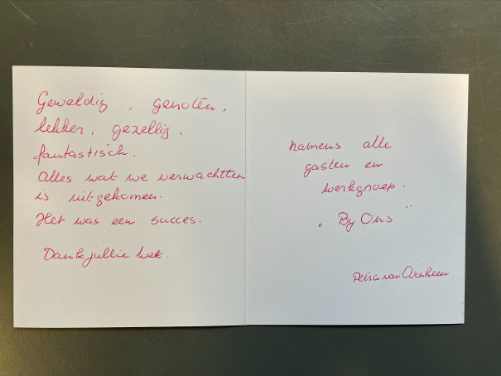 Geweldig, genoten,
lekker, gezellig,
fantastisch.
Alles wat we verwachtten
is uitgekomen.
Het was een succes.
Dank jullie wel.
namens alle
gasten en
werkgroep.
„ By Ons "
van Arnhem